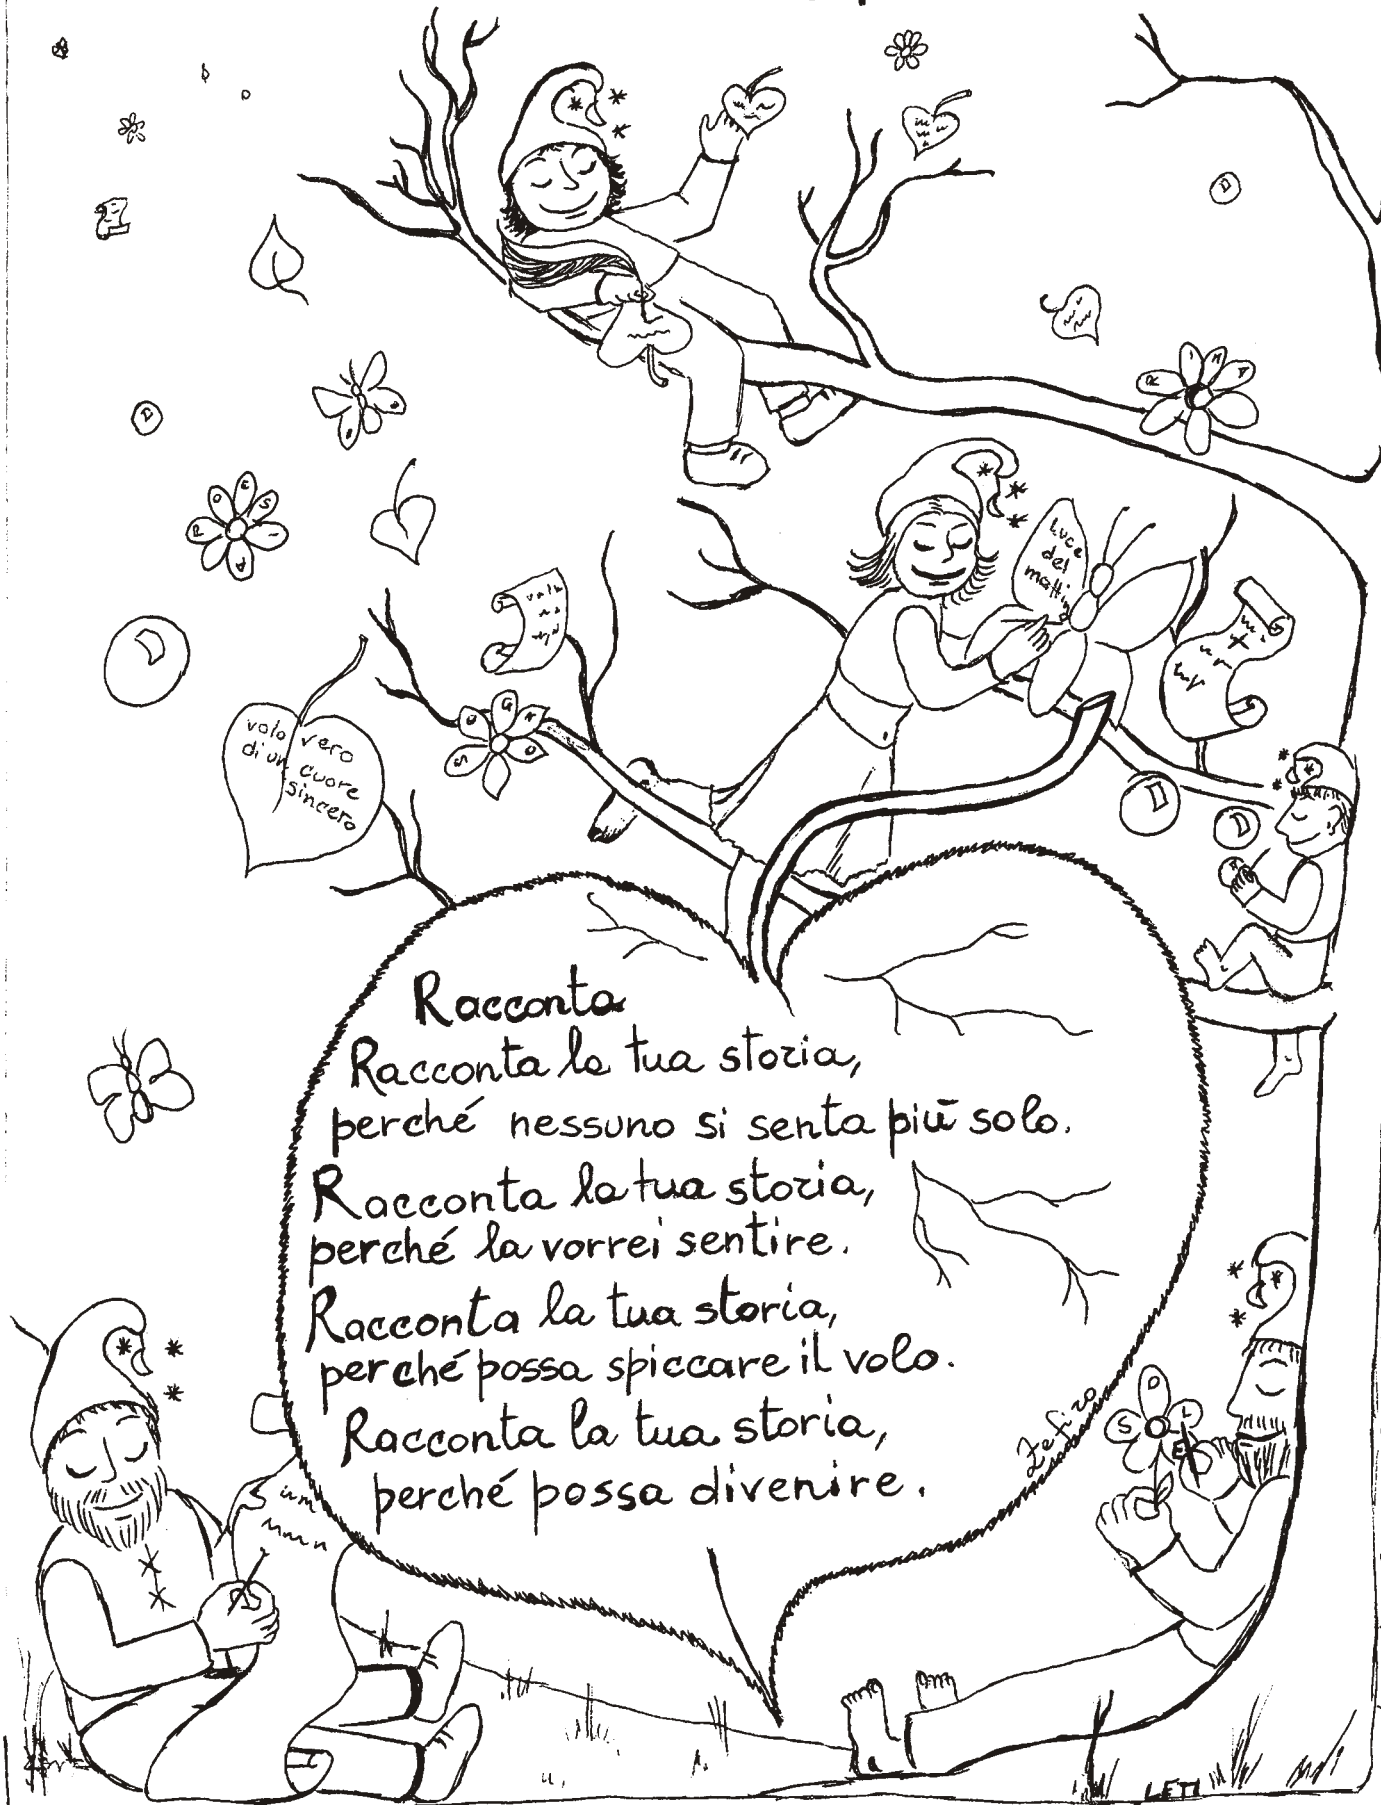 RIMA
POESIA
Luce
del
mattino
SOGNO
volo vero
di un cuore
sincero
Racconta
Racconta la tua storia,
perché nessuno si senta più solo.
Racconta la tua storia,
perché la vorrei sentire.
Racconta la tua storia,
perché possa spiccare il volo.
Racconta la tua storia,
perché possa divenire.
Zefiro
SOLE
LETI